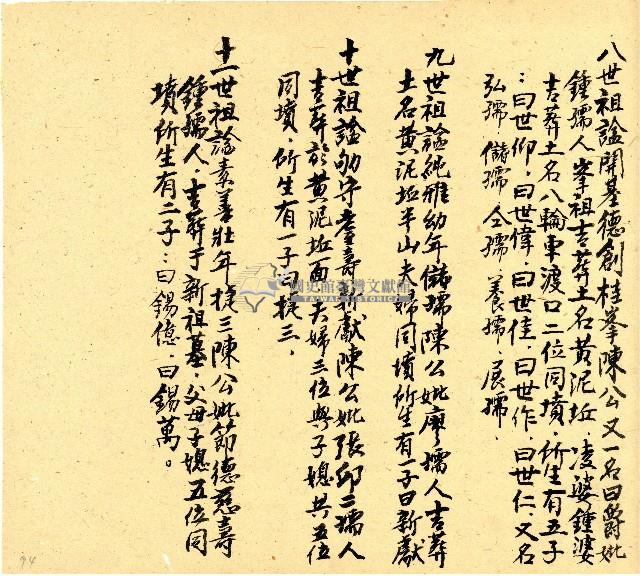 八世祖諡開基德創桂峯陳公又一名曰爵妣
鍾孺人峯祖吉葬土名黄泥坵 凌婆鍾婆
吉葬土名八輪車渡口二位同墳．所生有五子
：曰世仰．曰世偉．曰世佳．曰世作．曰世仁又名
弘孺．儲孺．仝孺．養孺．展孺．
九世祖諡純雅幼年儲孺陳公妣廖孺人吉葬
土名黄泥坵半山夫婦同墳所生有一子曰新獻
十世祖諡幼守耆壽新獻陳公妣張邱二孺人
吉葬於黄泥坵面．夫婦三位與子媳共五位
同墳．所生有一子曰捷三．
十一世祖諡素善壯年捷三陳公妣節德慈壽
鍾孺人．吉葬于新祖墓．父母子媳五位同
墳所生有二子：曰錫億．曰錫萬。
國史館臺灣文獻館
TAIWAN HISTORICA
94